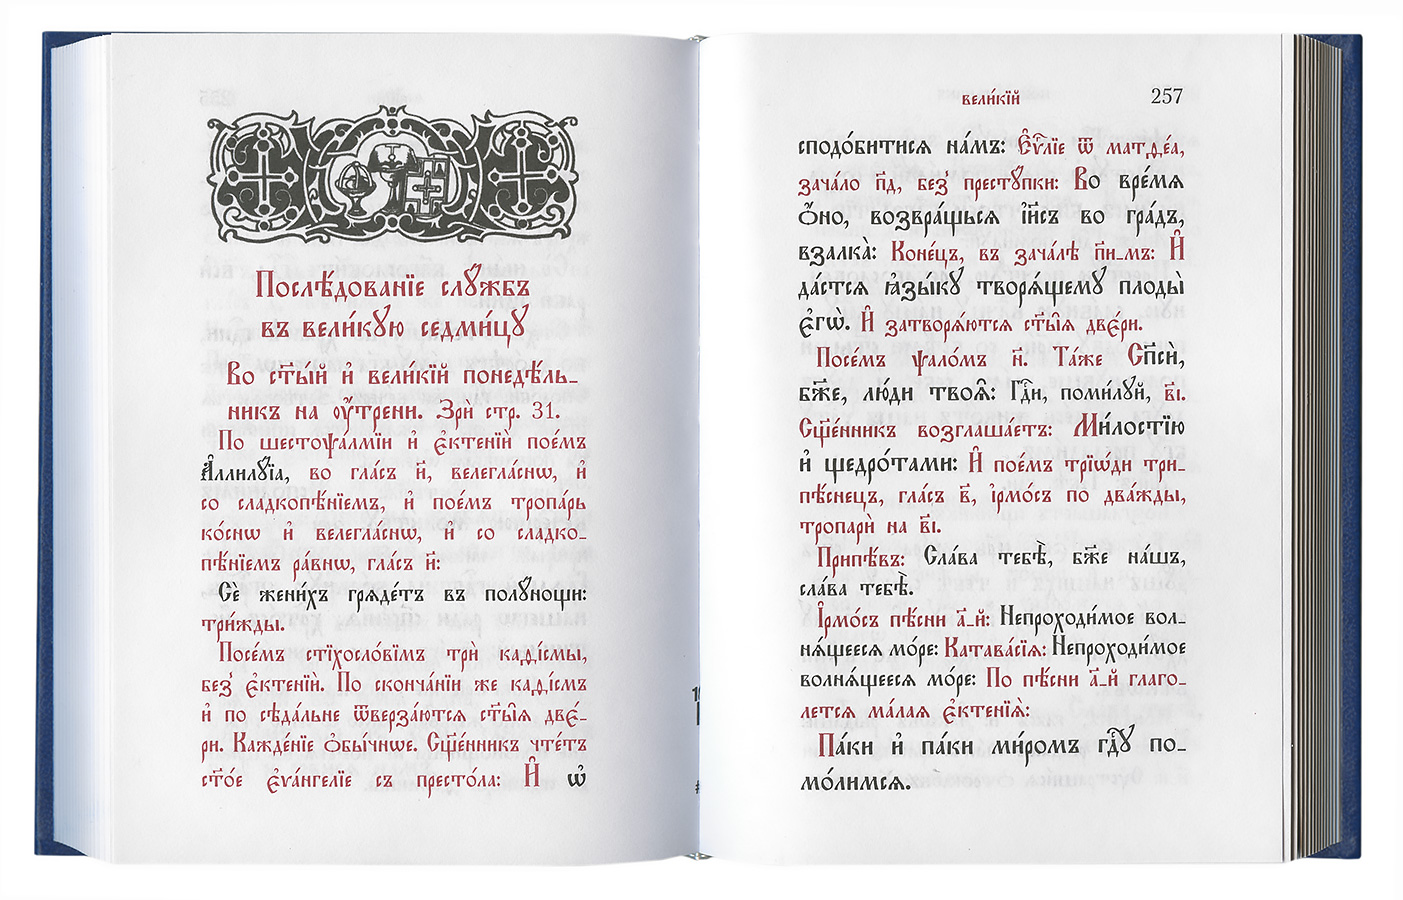 Послѣ́дованїе слꙋ́жбъ
въ вели́кꙋю седми́цꙋ
Во ст҃ы́й и҆ вели́кїй понедѣ́ль_
никъ на оу҆́трени. Зрѝ стр. 31.
По шестоѱа́лмїи и҆ є҆ктенїѝ пое́мъ
А҆ллилꙋ́їа, во гла́съ и҃, велегла́снѡ, и҆
со сладкопѣ́нїемъ, и҆ пое́мъ тропа́рь
ко́снѡ и҆ велегла́снѡ, и҆ со сладко_
пѣ́нїемъ ра́внѡ, гла́съ и҃:
Сѐ жени́хъ грѧде́тъ въ полꙋ́нощи:
три́жды.
Посе́мъ стїхосло́вимъ трѝ каѳі́смы,
без̾ є҆ктенїѝ. По сконча́нїи же каѳі́смъ
и҆ по сѣда́льне ѿверза́ютсѧ ст҃ы̑ѧ две́_
ри. Кажде́нїе ѻ҆бы́чное. Сщ҃е́нникъ чте́тъ
ст҃о́е є҆ѵа́нгелїе съ престо́ла: И҆ ѡ҆
вели́кїй 257
сподо́битисѧ на́мъ: Є҆ѵⷢ҇лїе ѿ матѳе́а,
зача́ло п҃д, без̾ престꙋ́пки: Во вре́мѧ
ѻ҆́но, возвра́щьсѧ і҆и҃съ во гра́дъ,
взалка̀: Коне́цъ, въ зача́лѣ п҃и_мъ: И҆
да́стсѧ ꙗ҆зы́кꙋ творѧ́щемꙋ плоды̀
є҆гѡ̀. И҆ затворѧ́ютсѧ ст҃ы̑ѧ две́ри.
Посе́мъ ѱало́мъ н҃. Та́же Сп҃сѝ,
бж҃е, лю́ди твоѧ̑: Гдⷭ҇и, поми́лꙋй, в҃і.
Сщ҃е́нникъ возглаша́етъ: Ми́лостїю
и҆ щедро́тами: И҆ пое́мъ трїѡ́ди три_
пѣ́снецъ, гла́съ в҃, і҆рмо́съ по два́жды,
тропарѝ на в҃і.
Припѣ́въ: Сла́ва тебѣ̀, бж҃е на́шъ,
сла́ва тебѣ̀.
І҆рмо́съ пѣ́сни а҃_й: Непроходи́мое вол_
нѧ́щеесѧ мо́ре: Катава́сїѧ: Непроходи́мое
волнѧ́щеесѧ мо́ре: По пѣ́сни а҃_й глаго́_
летсѧ ма́лаѧ є҆ктенїѧ̀:
Па́ки и҆ па́ки ми́ромъ гдⷭ҇ꙋ по_
мо́лимсѧ.